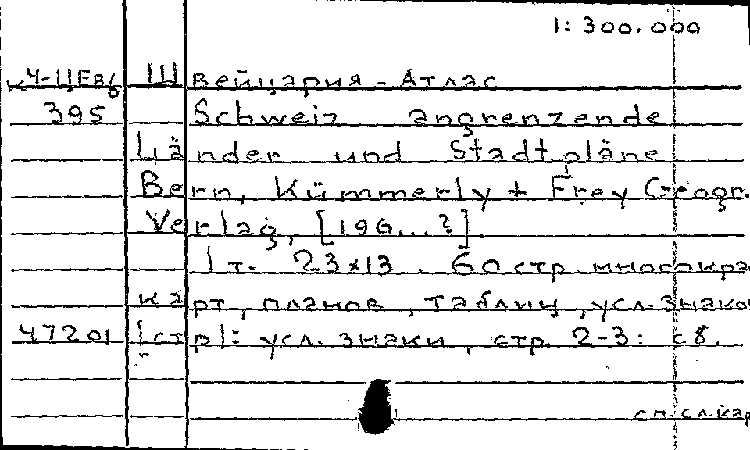 1: 300.000
К4-ЦЕв6 Швейцария - Атлас
395 Schweiz angrenzende
Länder und Stadtpläne
Bern, Kümmerly + Frey Geogr.
Verlag, [196...?]
1 т. 23x13. 60 стр. многокра
карт, планов, таблиц, усл. знако
47201 1 стр|: усл. знаки, стр. 2-3: сб.
см. сл. кар